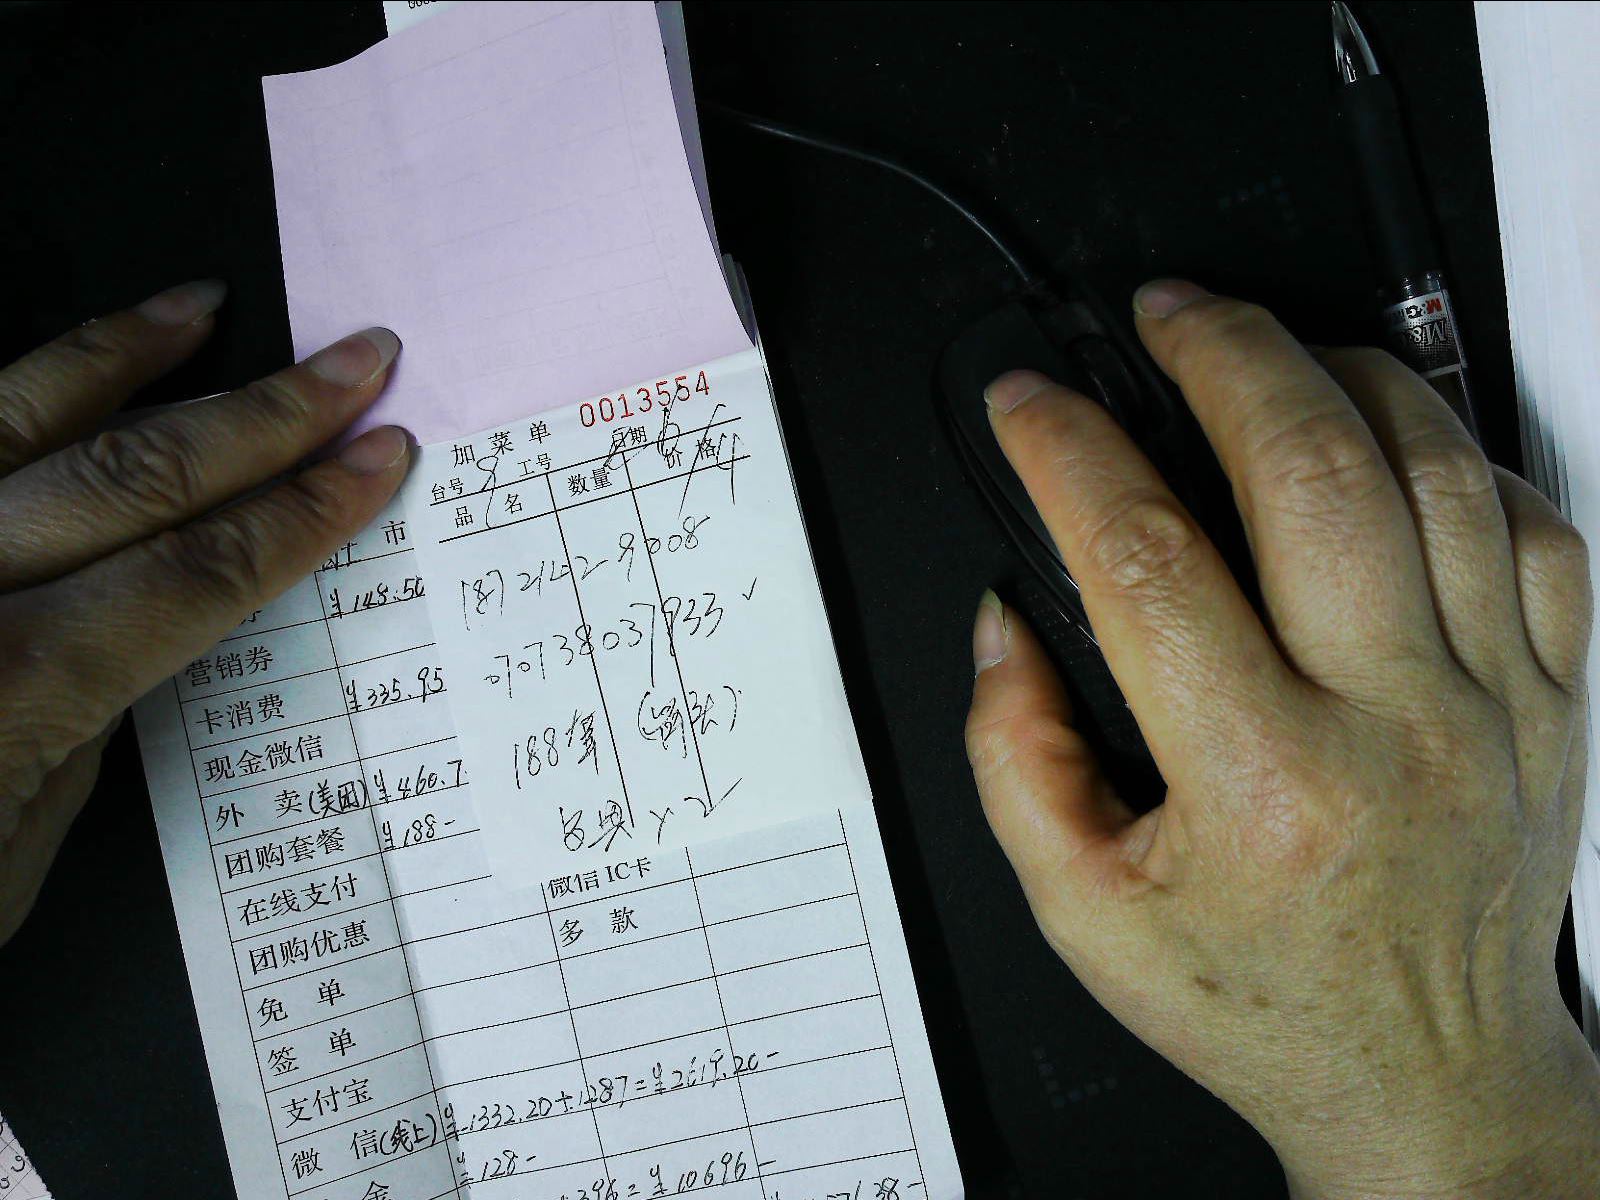 0013554
加菜单
日期
台号
工号
品名
数量
价格
187 2142 9008
0707 38037933 ✓
188套
x2
市
¥148.50
营销券
卡消费 ¥335.95
现金微信
外卖(美团) ¥460.7
团购套餐 ¥188-
在线支付
微信IC卡
团购优惠
多款
免单
签单
支付宝
微信(线上) ¥1332.20+1287=¥2619.20-
金 ¥128-
+396=¥10696-
38-
M&G